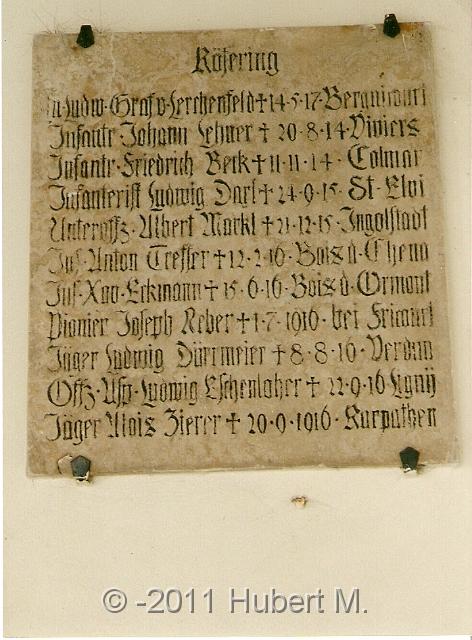 Köfering
Ludw · Graf v Lerchenfeld † 14·5·17·
Infantr Johann Lehner † 20·8·14·Viviers
Infantr·Friedrich Beck † 11·11·14· Colmar
Infanterist Ludwig Darl † 24·9·15· St·Eloi
Unteroffz·Albert Markl † 21·12·15·Ingolstadt
Inf·Anton Treffer † 12·2·16·Bois d·Chena
Inf·Xav·Eckmann † 15·6·16·Bois d·Ormont
Pionier Joseph Reber † 1·7·1916·bei Fricourt
Jäger Ludwig Dürrmeier † 8·8·16·Verdun
Offz·Asp·Ludwig Eschenlaher † 22·9·16·Ligny
Jäger Alois Zierer † 20·9·1916·Karpathen
© -2011 Hubert M.